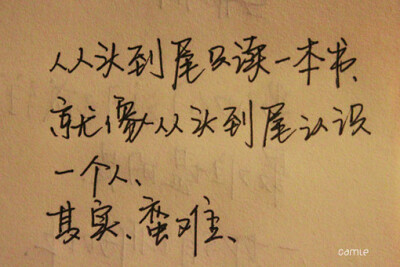 从头到尾只读一本书、
就像从头到尾认识
一个人、
其实、蛮难、
camie